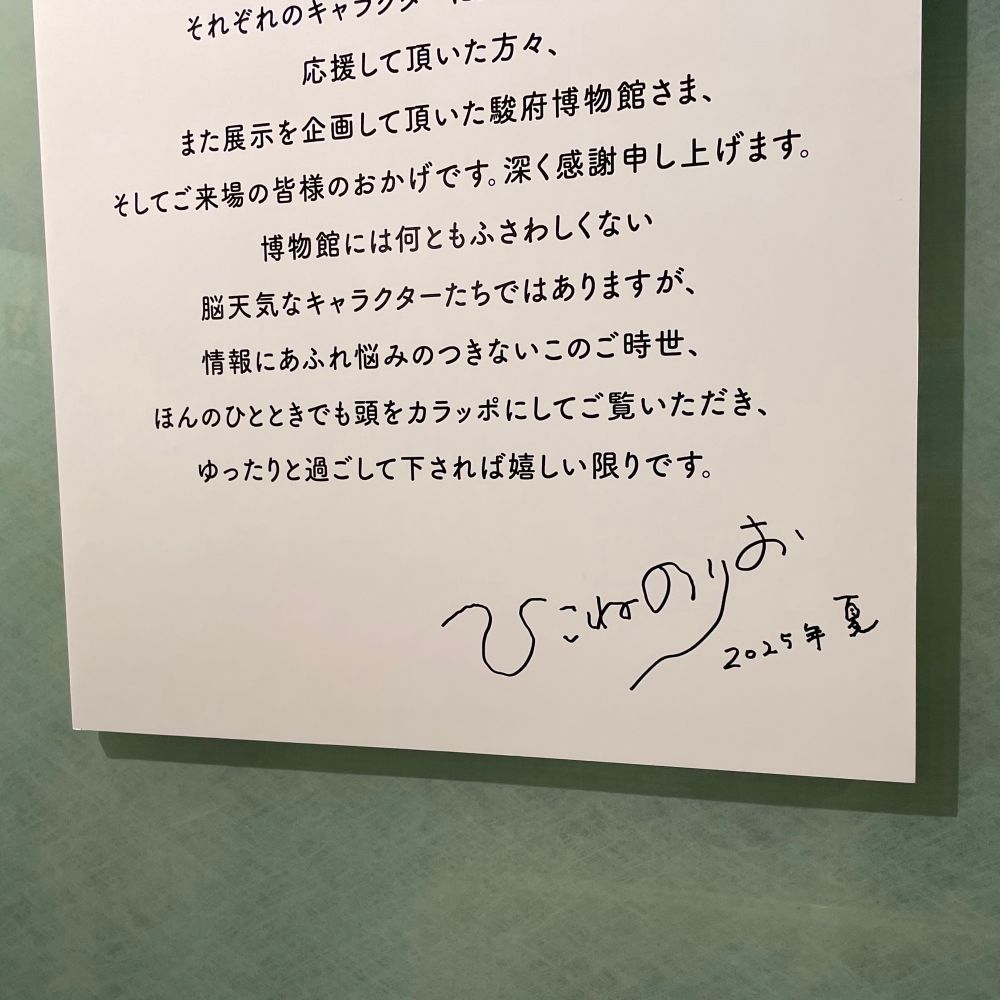 それぞれのキャラクターに
応援して頂いた方々、
また展示を企画して頂いた駿府博物館さま、
そしてご来場の皆様のおかげです。深く感謝申し上げます。
博物館には何ともふさわしくない
脳天気なキャラクターたちではありますが、
情報にあふれ悩みのつきないこのご時世、
ほんのひとときでも頭をカラッポにしてご覧いただき、
ゆったりと過ごして下されば嬉しい限りです。
ひこねのりお
2025年 夏